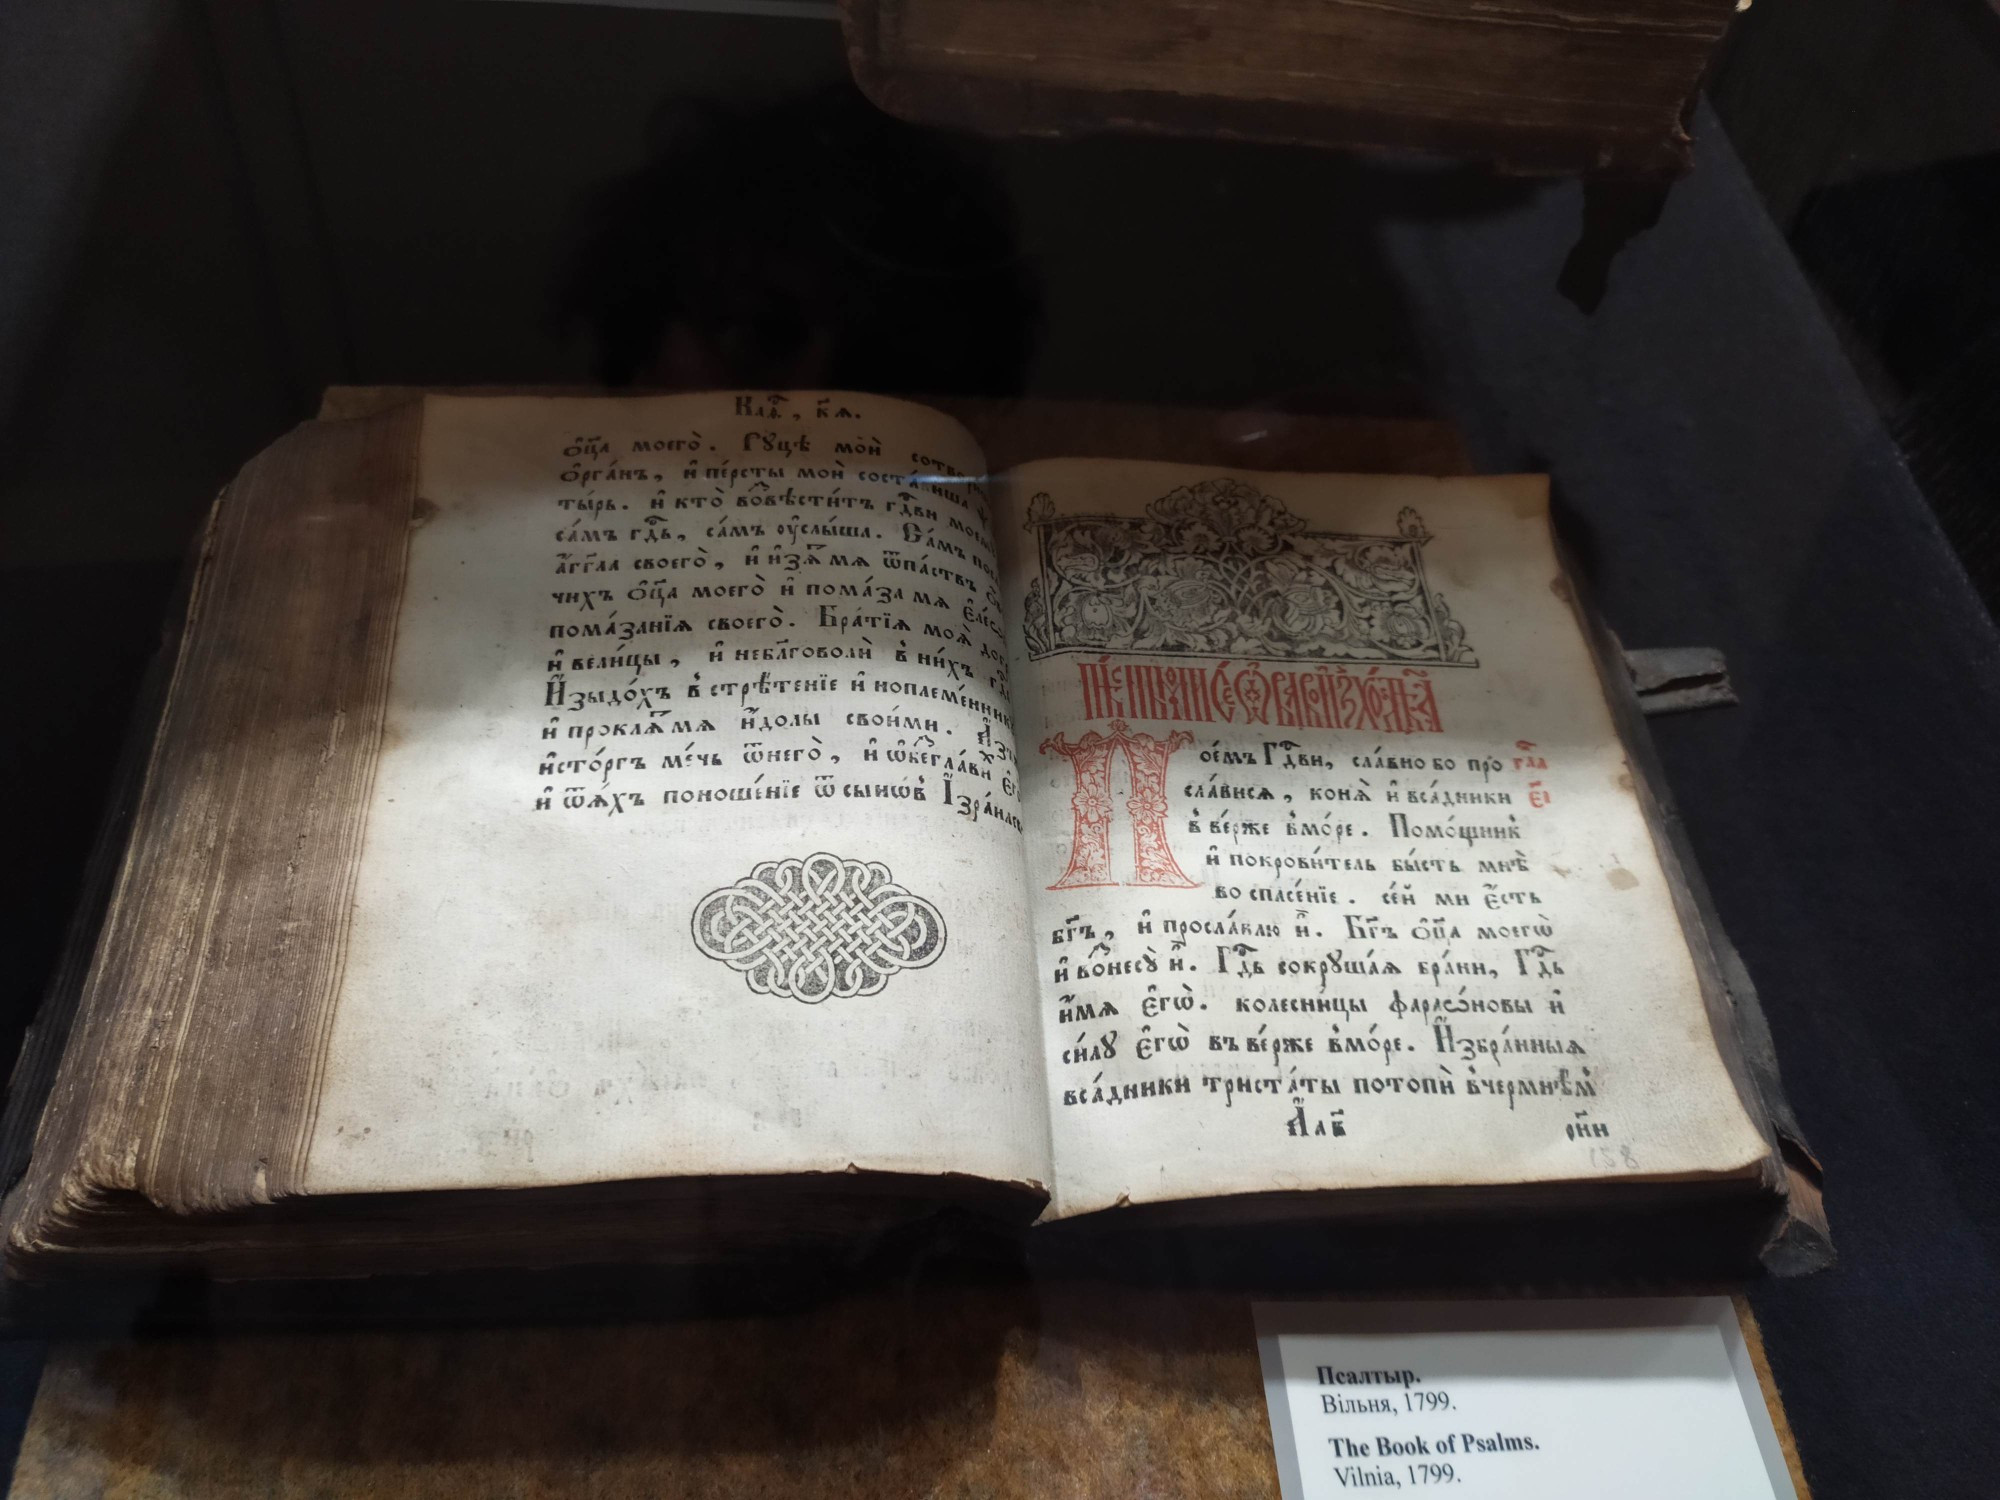 Каѳ҃, к҃я.
ѻ҆ц҃а моегѡ̀. Рꙋцѣ мои̑ сотвори
ѻ҆рга́нъ, и҆ пе́рсты мои̑ соста́виша
ты́рь. и҆ кто̀ возвѣсти́тъ гдⷭ҇ви моемꙋ
са́мъ гдⷭ҇ь, са́мъ ᲂу҆слы́ша. Са́мъ посла
а҆́гг҃ла своего̀, и҆ изѧ́тъ мѧ ѿпа́ствъ
чи́хъ ѻ҆ц҃а моего̀ и҆ пома́за мѧ є҆ле́ѡ
пома́занїѧ своего̀. Бра́тїѧ моѧ̑ до
и҆ вели́цы, и҆ неблⷢ҇оволѝ в ни́хъ гдⷭ҇ь
И҆зыдо́хъ в стрѣ́тенїе и҆ноплеме́нник
и҆ проклѧ́тъ мѧ и҆́долы свои́ми. А҆́зъ
и҆сто́ргъ ме́чь ѿ него̀, и҆ ѡ҆безгла́вихъ є҆го̀
и҆ ѿѧ́хъ поноше́нїе ѿ сыно́въ І҆зра́илев
Пѣсни Моѵсеѡвы во Исходѣ, а҃
Пое́мъ Гдⷭ҇ви, сла́вно бо про
гла
сла́висѧ, конѧ̀ и҆ вса́дники
є҃і
в ве́рже в мо́ре. Помо́щник
и҆ покрови́тель бы́сть мнѣ̀
во спасе́нїе. се́й ми є҆́сть
бг҃ъ, и҆ просла́влю и҆̀. Бг҃ъ ѻ҆ц҃а моегѡ̀
и҆ вознесꙋ̀ и҆̀. Гдⷭ҇ь сокрꙋша́ѧ бра́ни, Гдⷭ҇ь
и҆́мѧ є҆гѡ̀. колесни́цы фараѡ́новы и҆
си́лꙋ є҆гѡ̀ въ ве́рже в мо́ре. И҆збра́нныѧ
вса́дники триста́ты потопѝ в чермнѣ́м
А҆лв҃
рн҃и
158
Псалтыр.
Вільня, 1799.
The Book of Psalms.
Vilnia, 1799.